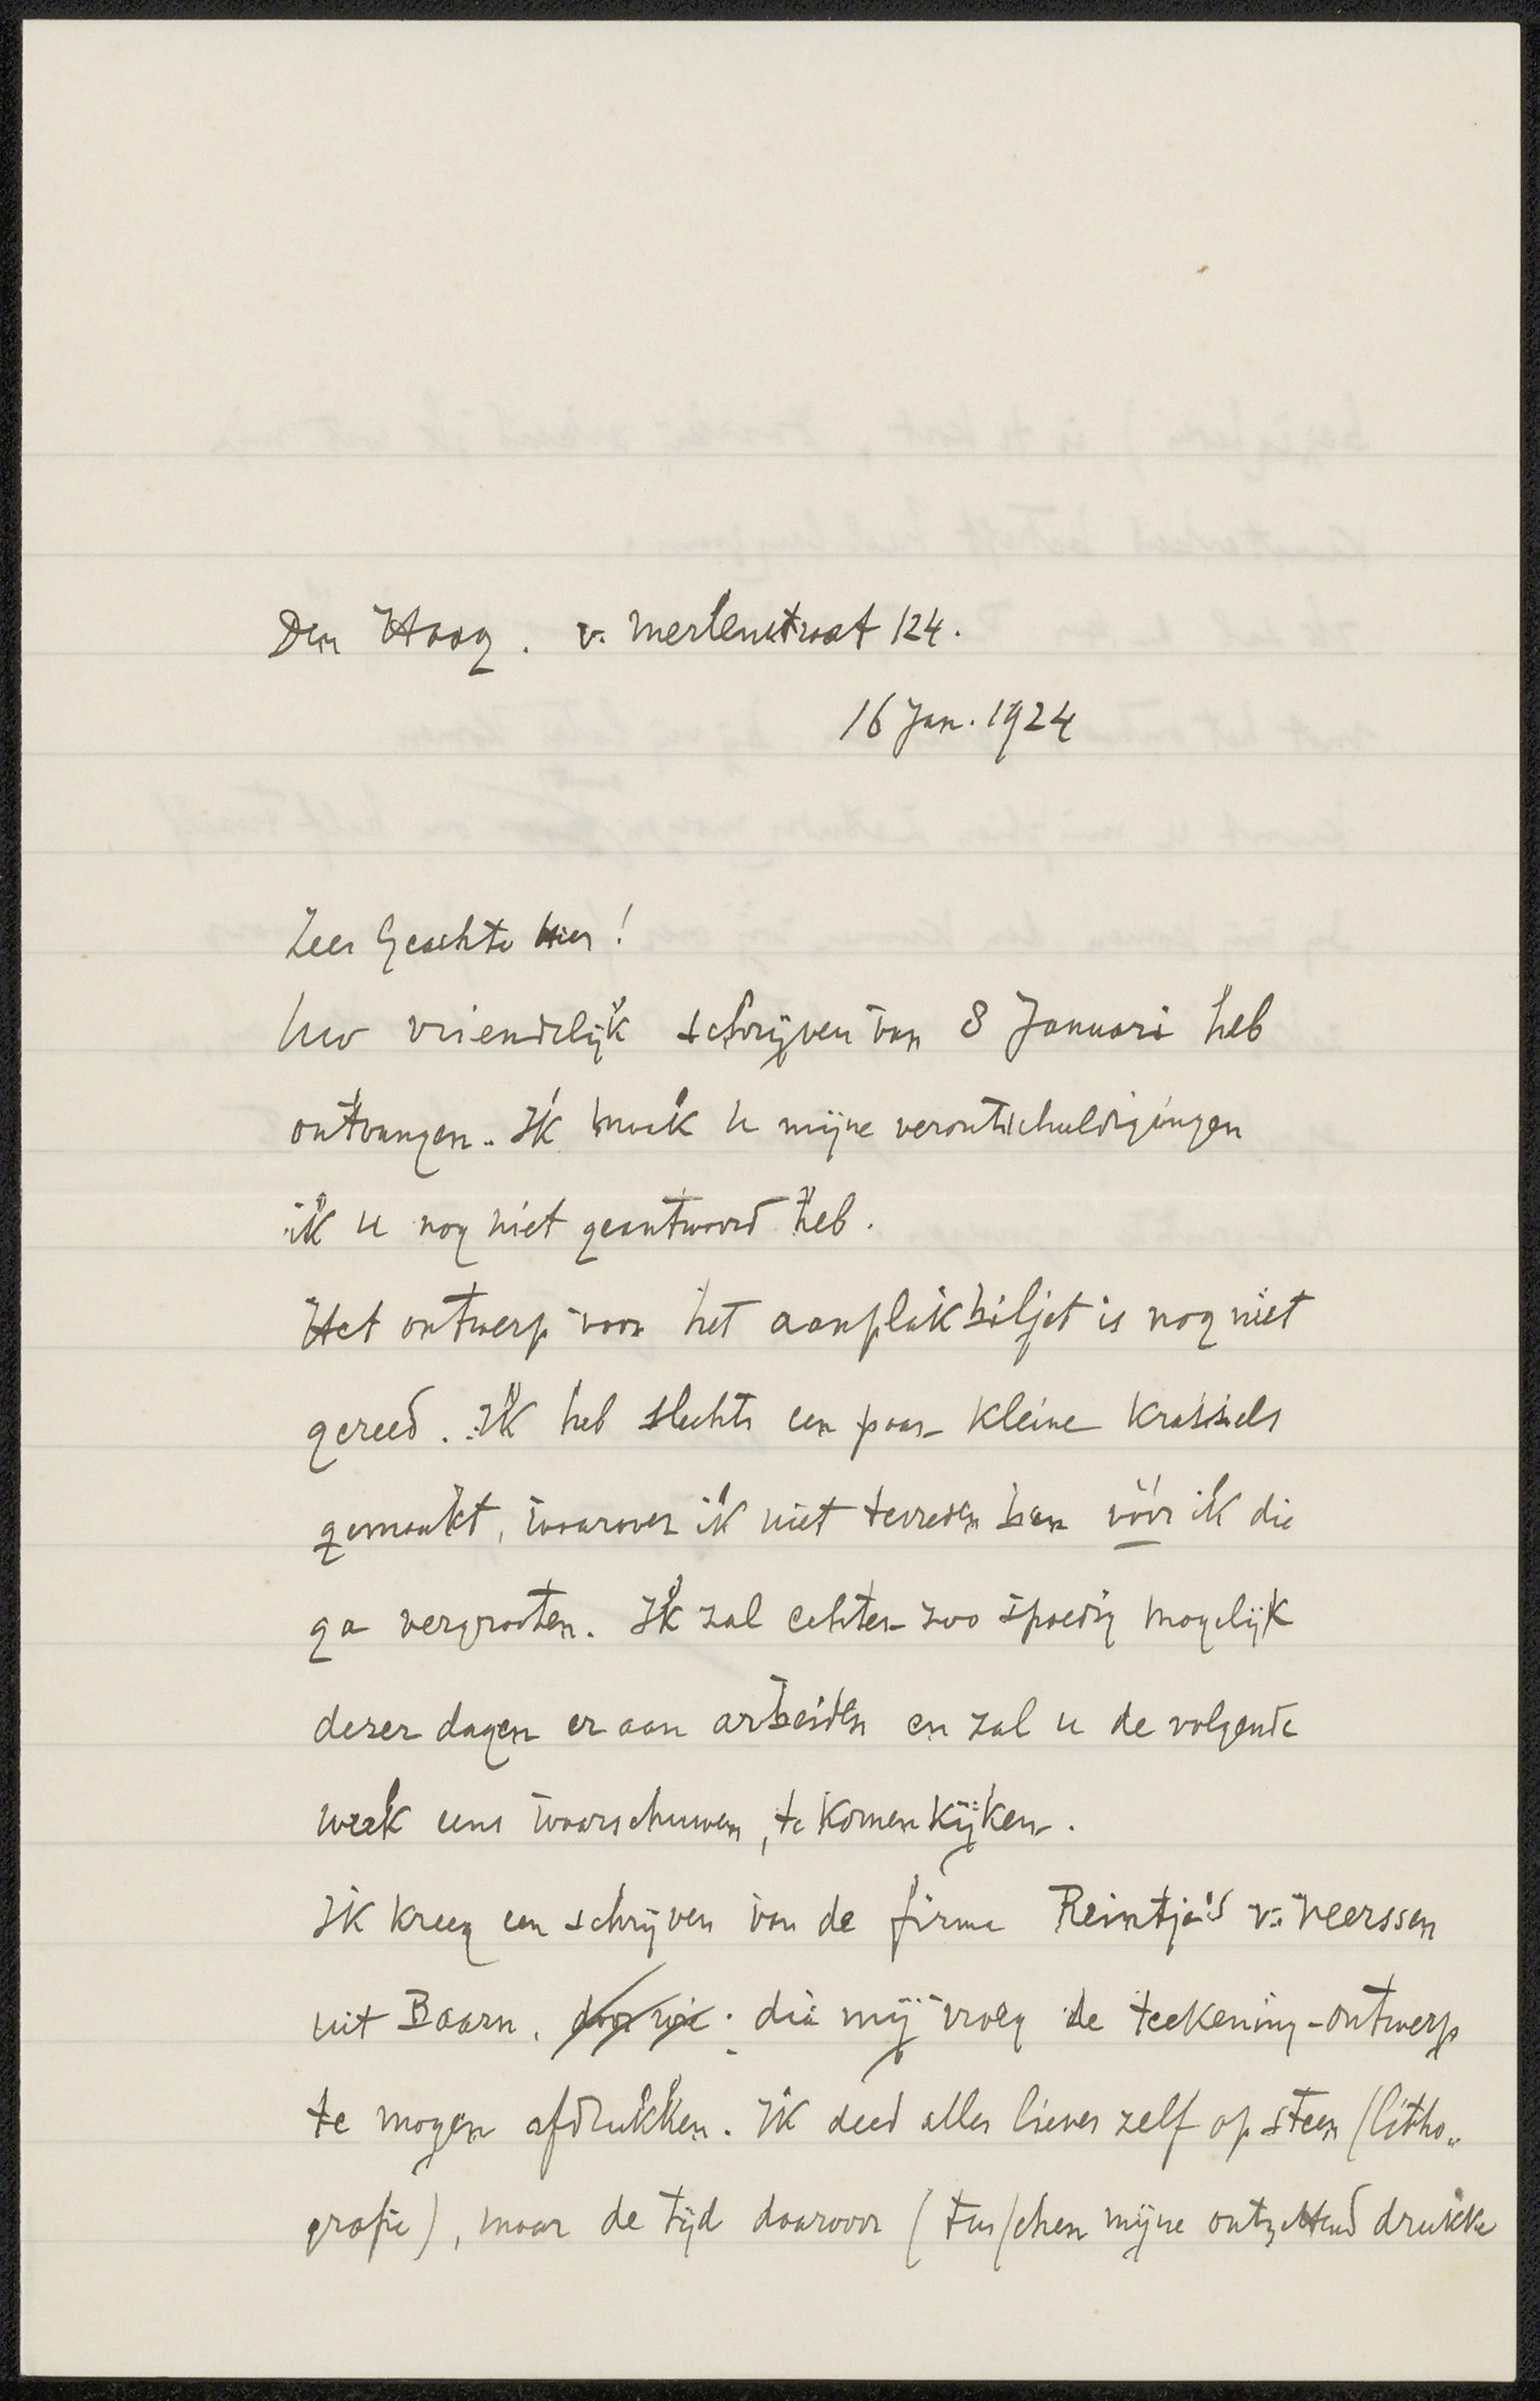 Den Haag. v. Merlenstraat 124.
16 Jan. 1924
Zeer Geachte Heer!
Uw vriendelijk schrijven van 8 Januari heb
ontvangen. Ik maak u mijne verontschuldigingen
ik u nog niet geantwoord heb.
Het ontwerp voor het aanplakbiljet is nog niet
gereed. Ik heb slechts een paar kleine krabbels
gemaakt, waarover ik niet tevreden ben vóór ik die
ga vergrooten. Ik zal echter zoo spoedig mogelijk
dezer dagen er aan arbeiden en zal u de volgende
week eens waarschuwen, te komen kijken.
Ik kreeg een schrijven van de firma Reintjes v. Heerssen
uit Baarn, die mij vroeg de teekening-ontwerp
te mogen afdrukken. Ik deed alles liever zelf op steen (litho„
grafie), maar de tijd daarvoor (tusschen mijne ontzettend drukke